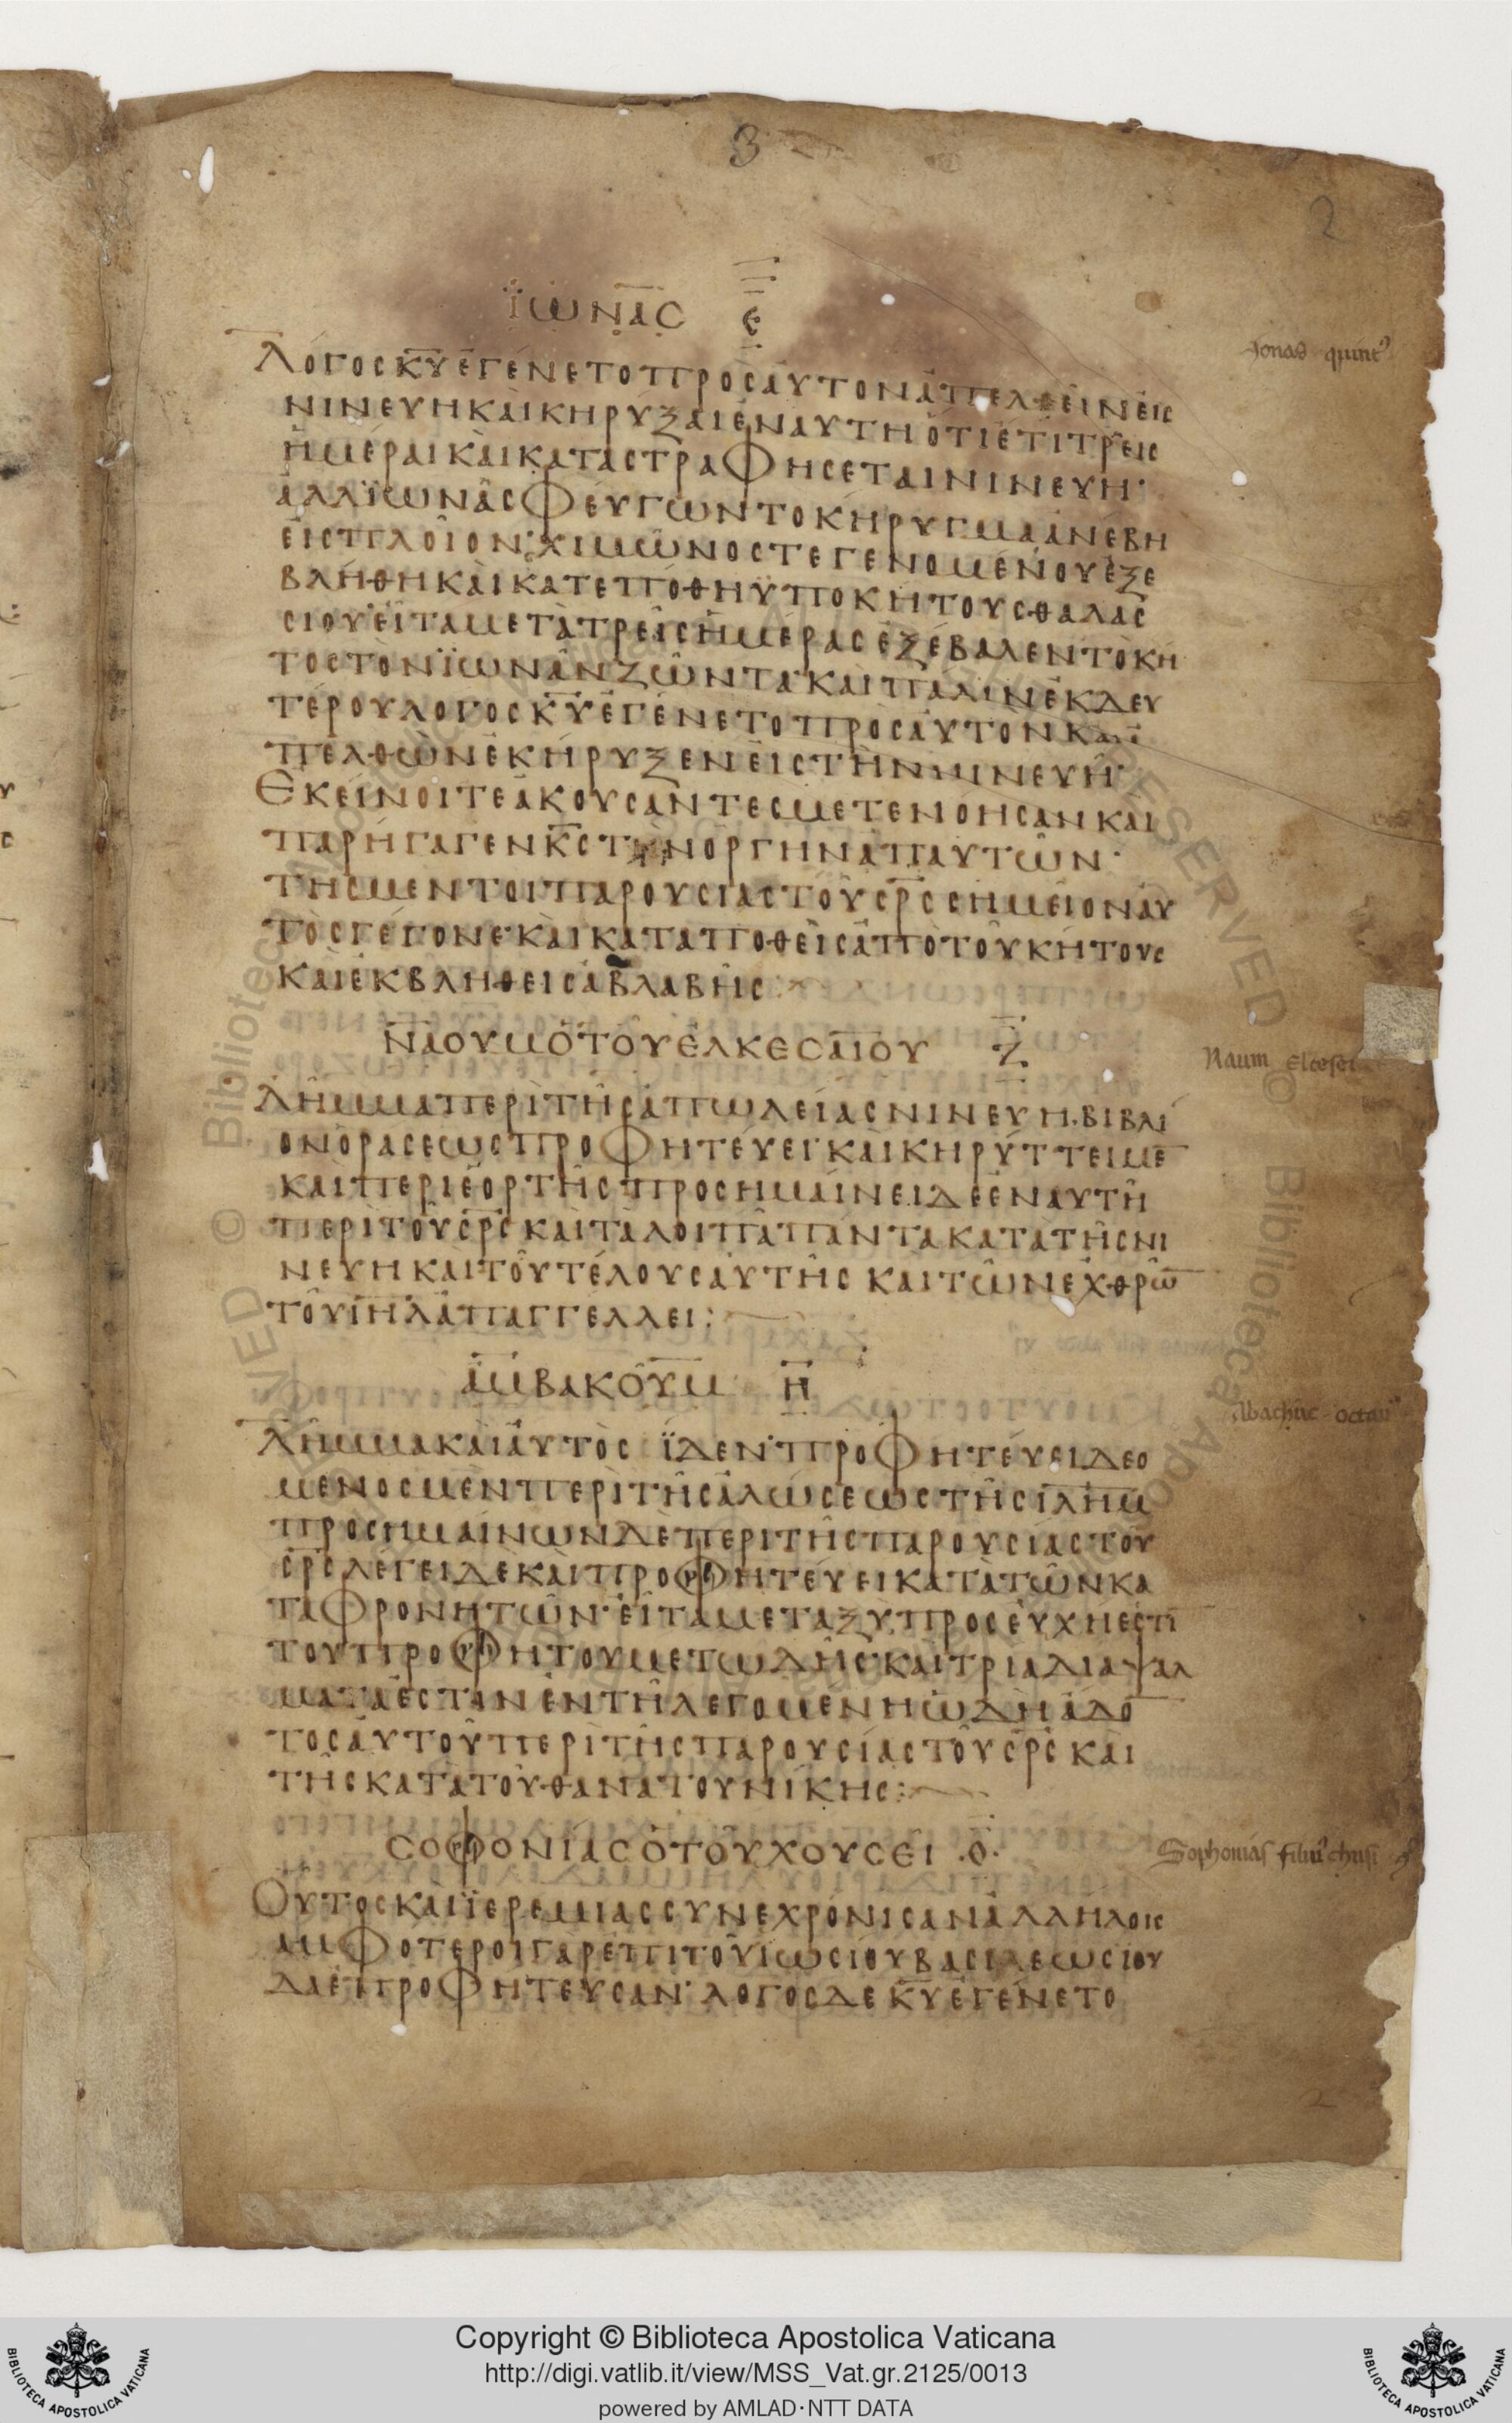 3
2
ΪΩΝΑC Ε
Jonas quintus
ΛΟΓΟC ΚΥ ΕΓΕΝΕΤΟ ΠΡΟC ΑΥΤΟΝ ΑΠΕΛΘΕΙΝ ΕΙC
ΝΙΝΕΥΗ ΚΑΙ ΚΗΡΥΞΑΙ ΕΝ ΑΥΤΗ ΟΤΙ ΕΤΙ ΤΡΕΙC
ΗΜΕΡΑΙ ΚΑΙ ΚΑΤΑCΤΡΑΦΗCΕΤΑΙ ΝΙΝΕΥΗ·
ΑΛΛ ΪΩΝΑC ΦΕΥΓΩΝ ΤΟ ΚΗΡΥΓΜΑ ΑΝΕΒΗ
ΕΙC ΠΛΟΙΟΝ· ΧΙΜΩΝΟC ΤΕ ΓΕΝΟΜΕΝΟΥ ΕΞΕ
ΒΛΗΘΗ ΚΑΙ ΚΑΤΕΠΟΘΗ ΫΠΟ ΚΗΤΟΥC ΘΑΛΑC
CΙΟΥ· ΕΙΤΑ ΜΕΤΑ ΤΡΕΙC ΗΜΕΡΑC ΕΞΕΒΑΛΕΝ ΤΟ ΚΗ
ΤΟC ΤΟΝ ΪΩΝΑΝ ΖΩΝΤΑ· ΚΑΙ ΠΑΛΙΝ ΕΚ ΔΕΥ
ΤΕΡΟΥ ΛΟΓΟC ΚΥ ΕΓΕΝΕΤΟ ΠΡΟC ΑΥΤΟΝ ΚΑΙ Α
ΠΕΛΘΩΝ ΕΚΗΡΥΞΕΝ ΕΙC ΤΗΝ ΝΙΝΕΥΗ·
ΕΚΕΙΝΟΙ ΤΕ ΑΚΟΥCΑΝΤΕC ΜΕΤΕΝΟΗCΑΝ ΚΑΙ
ΠΑΡΗΓΑΓΕΝ ΚC ΤΗΝ ΟΡΓΗΝ ΑΠ ΑΥΤΩΝ·
ΤΗC ΜΕΝΤΟΙ ΠΑΡΟΥCΙΑC ΤΟΥ CΡC CΗΜΕΙΟΝ ΑΥ
ΤΟC ΓΕΓΟΝΕ· ΚΑΙ ΚΑΤΑΠΟΘΕΙC ΑΠΟ ΤΟΥ ΚΗΤΟΥC
ΚΑΙ ΕΚΒΛΗΘΕΙC ΑΒΛΑΒΗC:
ΝΑΟΥΜ Ο ΤΟΥ ΕΛΚΕCΑΙΟΥ Ζ
Naum Elcesei
ΛΗΜΜΑ ΠΕΡΙ ΤΗC ΑΠΩΛΕΙΑC ΝΙΝΕΥΗ· ΒΙΒΛΙ
ΟΝ ΟΡΑCΕΩC ΠΡΟΦΗΤΕΥΕΙ· ΚΑΙ ΚΗΡΥΤΤΕΙ ΜΕ
ΚΑΙ ΠΕΡΙ ΕΟΡΤΗC ΠΡΟCΗΜΑΙΝΕΙ ΔΕ ΕΝ ΑΥΤΗ
ΠΕΡΙ ΤΟΥ CΡC ΚΑΙ ΤΑ ΛΟΙΠΑ ΠΑΝΤΑ ΚΑΤΑ ΤΗC ΝΙ
ΝΕΥΗ ΚΑΙ ΤΟΥ ΤΕΛΟΥC ΑΥΤΗC ΚΑΙ ΤΩΝ ΕΧΘΡΩ
ΤΟΥ ΙΗΛ ΑΠΑΓΓΕΛΛΕΙ:
ΑΜΒΑΚΟΥΜ Η
Abachuc octauus
ΛΗΜΜΑ ΚΑΙ ΑΥΤΟC ΪΔΕΝ· ΠΡΟΦΗΤΕΥΕΙ ΔΕΟ
ΜΕΝΟC ΜΕΝ ΠΕΡΙ ΤΗC ΑΛΩCΕΩC ΤΗC ΙΛΗΜ
ΠΡΟCΗΜΑΙΝΩΝ ΔΕ ΠΕΡΙ ΤΗC ΠΑΡΟΥCΙΑC ΤΟΥ
CΡC ΛΕΓΕΙ ΔΕ ΚΑΙ ΠΡΟΦΗΤΕΥΕΙ ΚΑΤΑ ΤΩΝ ΚΑ
ΤΑΦΡΟΝΗΤΩΝ· ΕΙΤΑ ΜΕΤΑΞΥ ΠΡΟCΕΥΧΗ ΕCΤΙ
ΤΟΥ ΠΡΟΦΗΤΟΥ ΜΕΤ ΩΔΗC· ΚΑΙ ΤΡΙΑ ΔΙΑΨΑΛ
ΜΑΤΑ ΕCΤΙΝ ΕΝ ΤΗ ΛΕΓΟΜΕΝΗ ΩΔΗ ΑΔΟ
ΤΟC ΑΥΤΟΥ ΠΕΡΙ ΤΗC ΠΑΡΟΥCΙΑC ΤΟΥ CΡC ΚΑΙ
ΤΗC ΚΑΤΑ ΤΟΥ ΘΑΝΑΤΟΥ ΝΙΚΗC:
CΟΦΟΝΙΑC Ο ΤΟΥ ΧΟΥCΕΙ ·Θ·
Sophonias filius chusi
ΟΥΤΟC ΚΑΙ ΪΕΡΕΜΙΑC CΥΝΕΧΡΟΝΙCΑΝ ΑΛΛΗΛΟΙC
ΑΜΦΟΤΕΡΟΙ ΓΑΡ ΕΠΙ ΤΟΥ ΙΩCΙΟΥ ΒΑCΙΛΕΩC ΙΟΥ
ΔΑ ΕΠΡΟΦΗΤΕΥCΑΝ· ΛΟΓΟC ΔΕ ΚΥ ΕΓΕΝΕΤΟ
Copyright © Biblioteca Apostolica Vaticana
http://digi.vatlib.it/view/MSS_Vat.gr.2125/0013
powered by AMLAD·NTT DATA
BIBLIOTECA APOSTOLICA VATICANA
BIBLIOTECA APOSTOLICA VATICANA